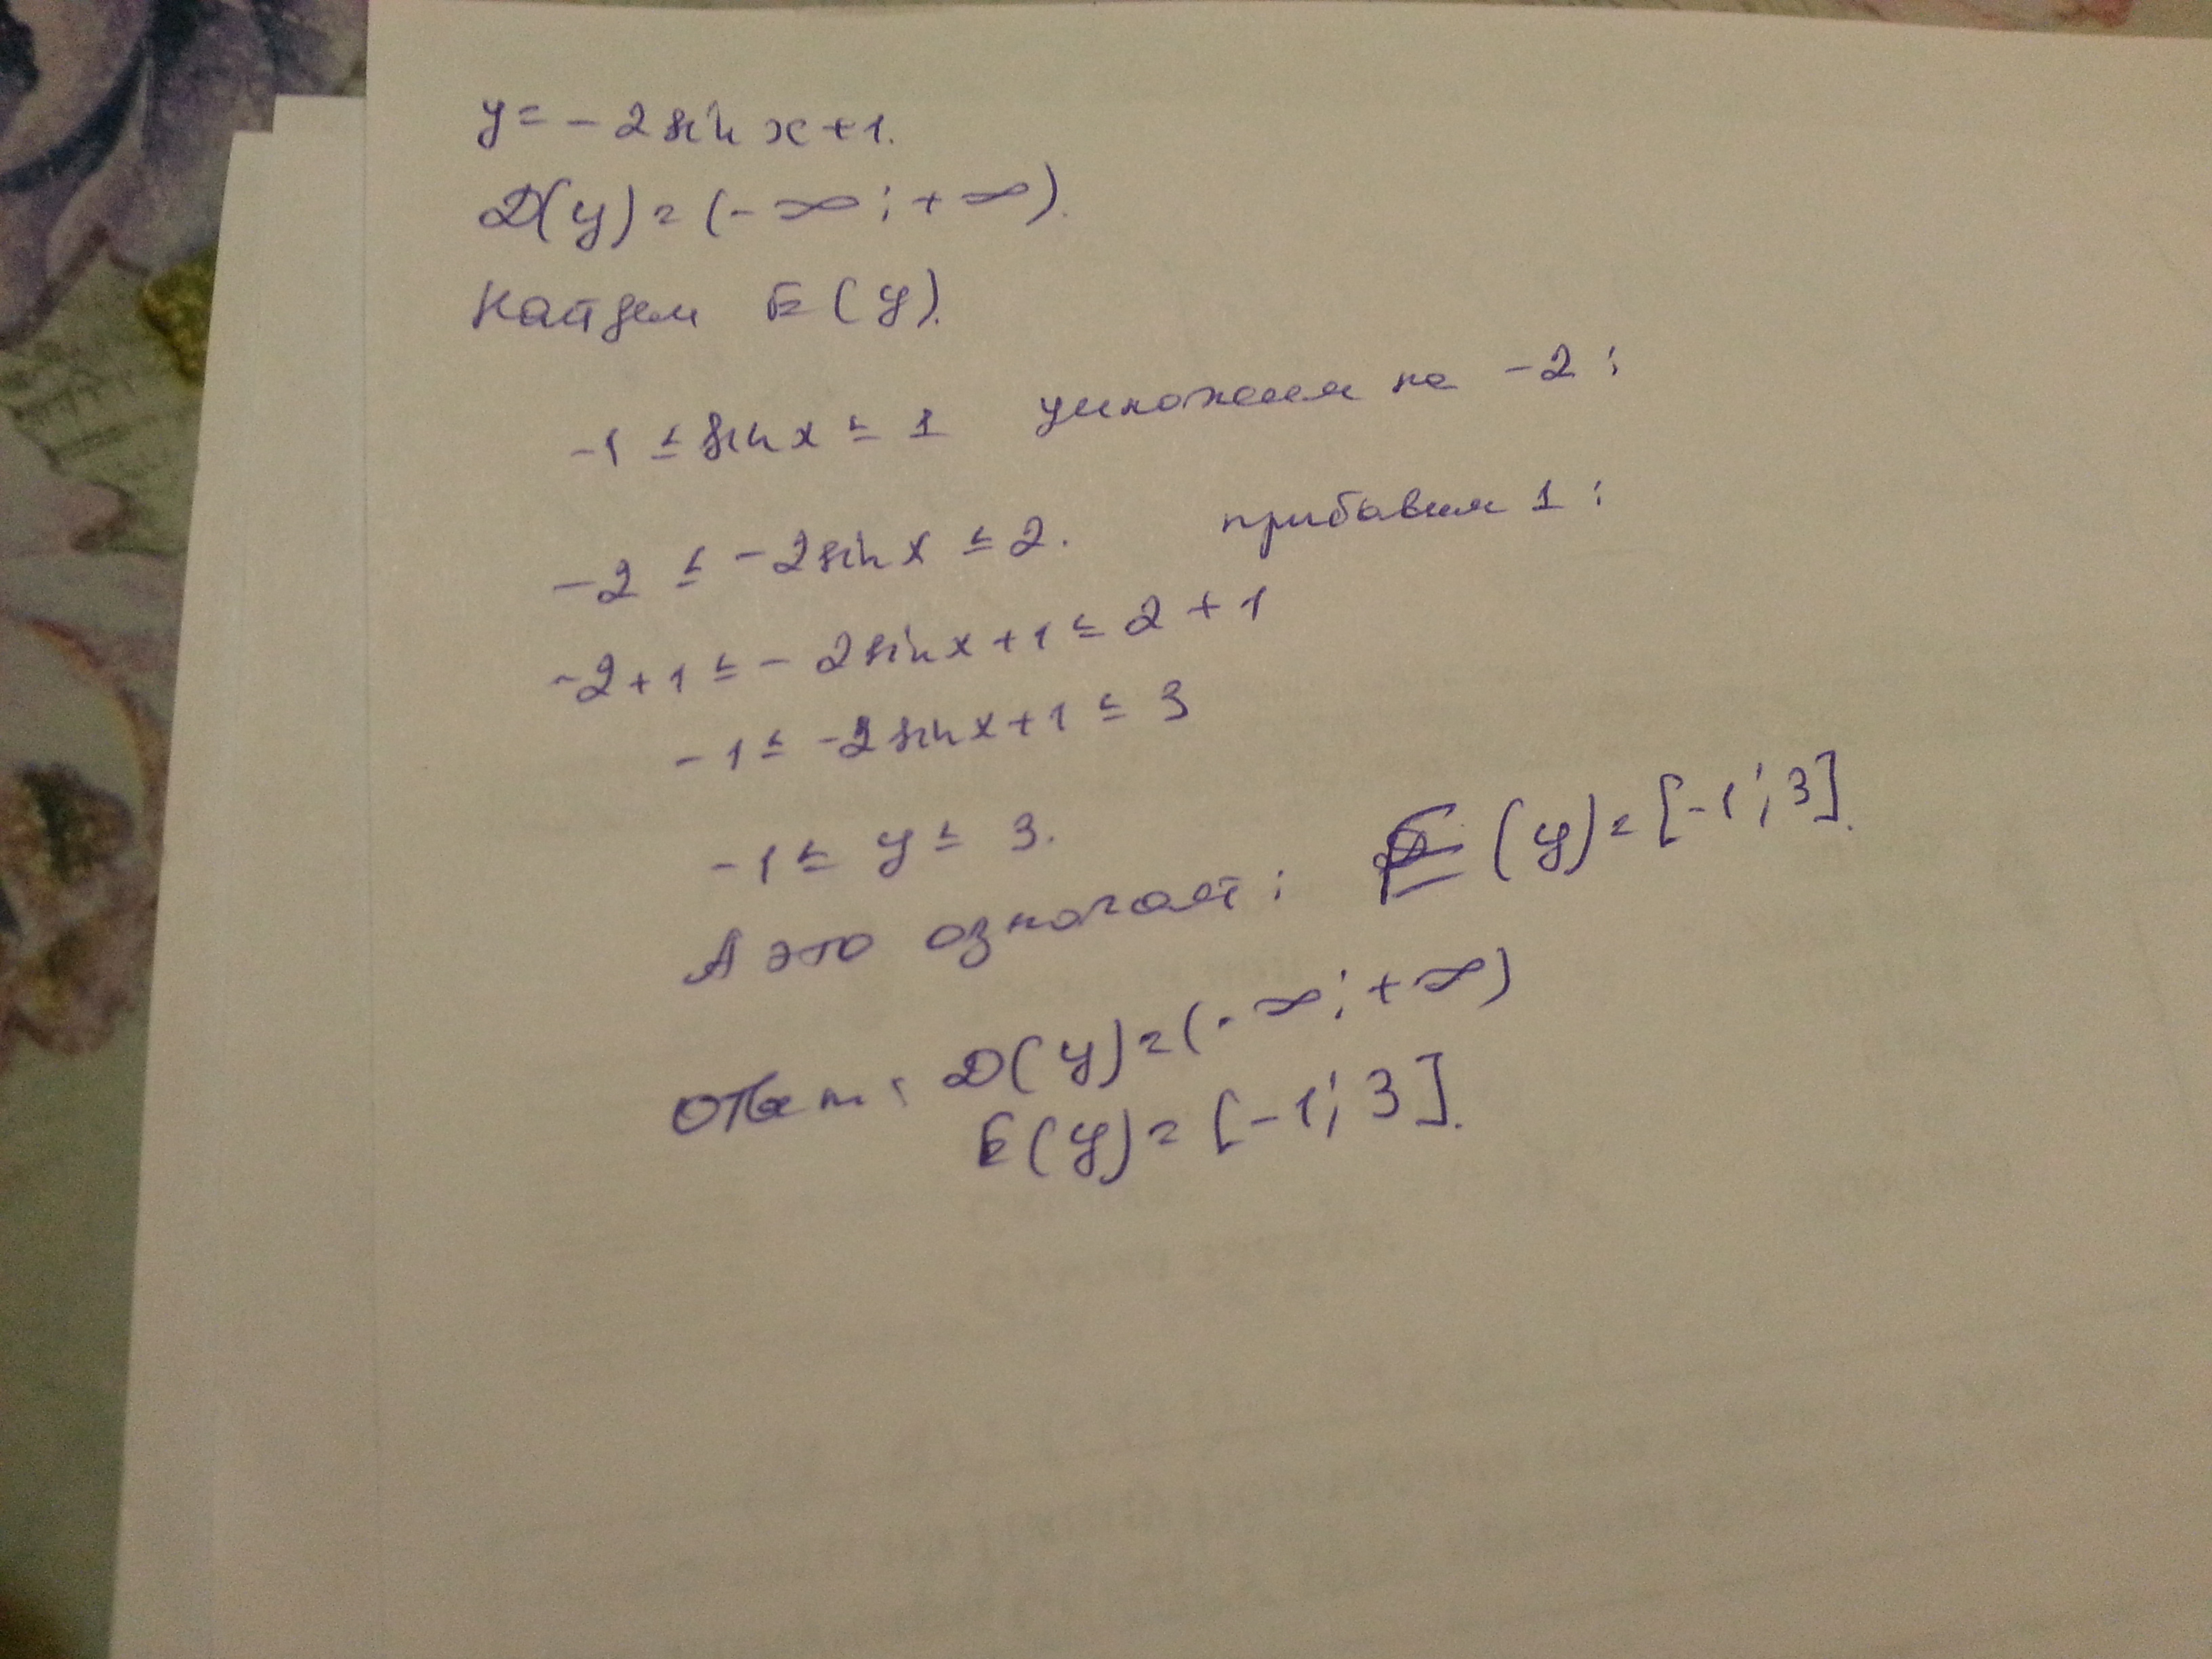 y = - 2 sin x + 1.
D(y) = (- ∞ ; + ∞).
Найдем E(y).
-1 ≤ sin x ≤ 1 умножим на -2 :
-2 ≤ -2 sin x ≤ 2. прибавим 1 :
-2 + 1 ≤ - 2 sin x + 1 ≤ 2 + 1
-1 ≤ -2 sin x + 1 ≤ 3
-1 ≤ y ≤ 3.
А это означает : E (y) = [-1 ; 3].
Ответ : D(y) = (- ∞ ; + ∞)
E(y) = [-1 ; 3].